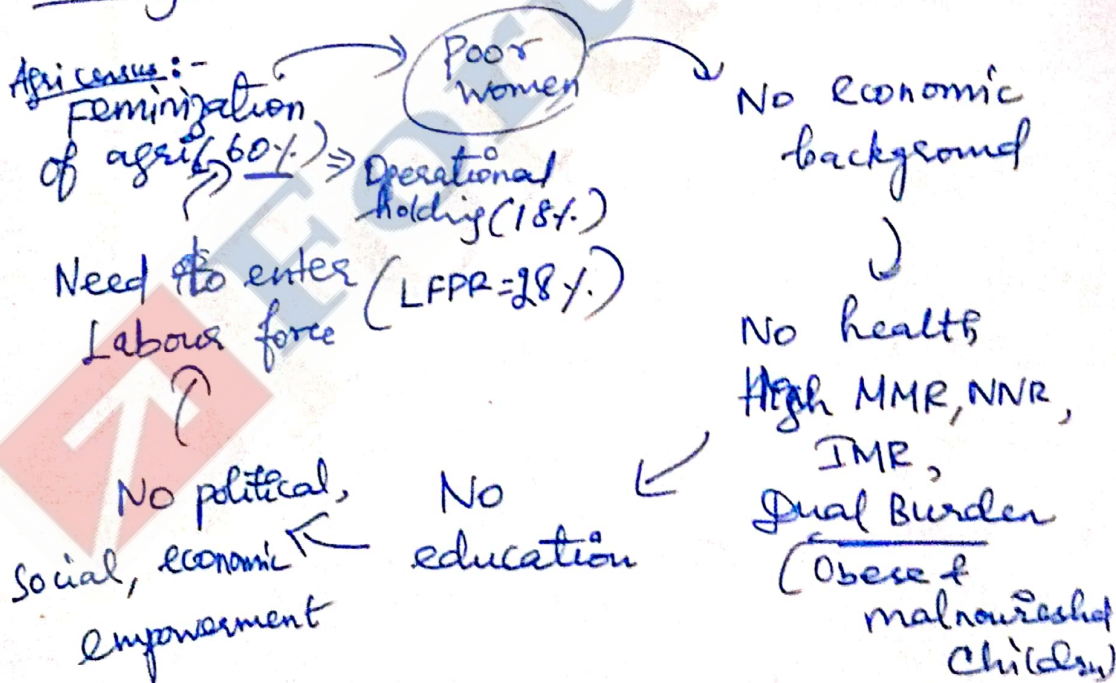 Agri census:-
Feminization
of agri (60%) ⇒ Operational
holding (18%)
Poor
women
No economic
background
No health,
High MMR, NNR,
IMR,
Dual Burden
(Obese &
malnourished
Children)
No
education
No political,
social, economic
empowerment
Need to enter
Labour force
(LFPR=28%)